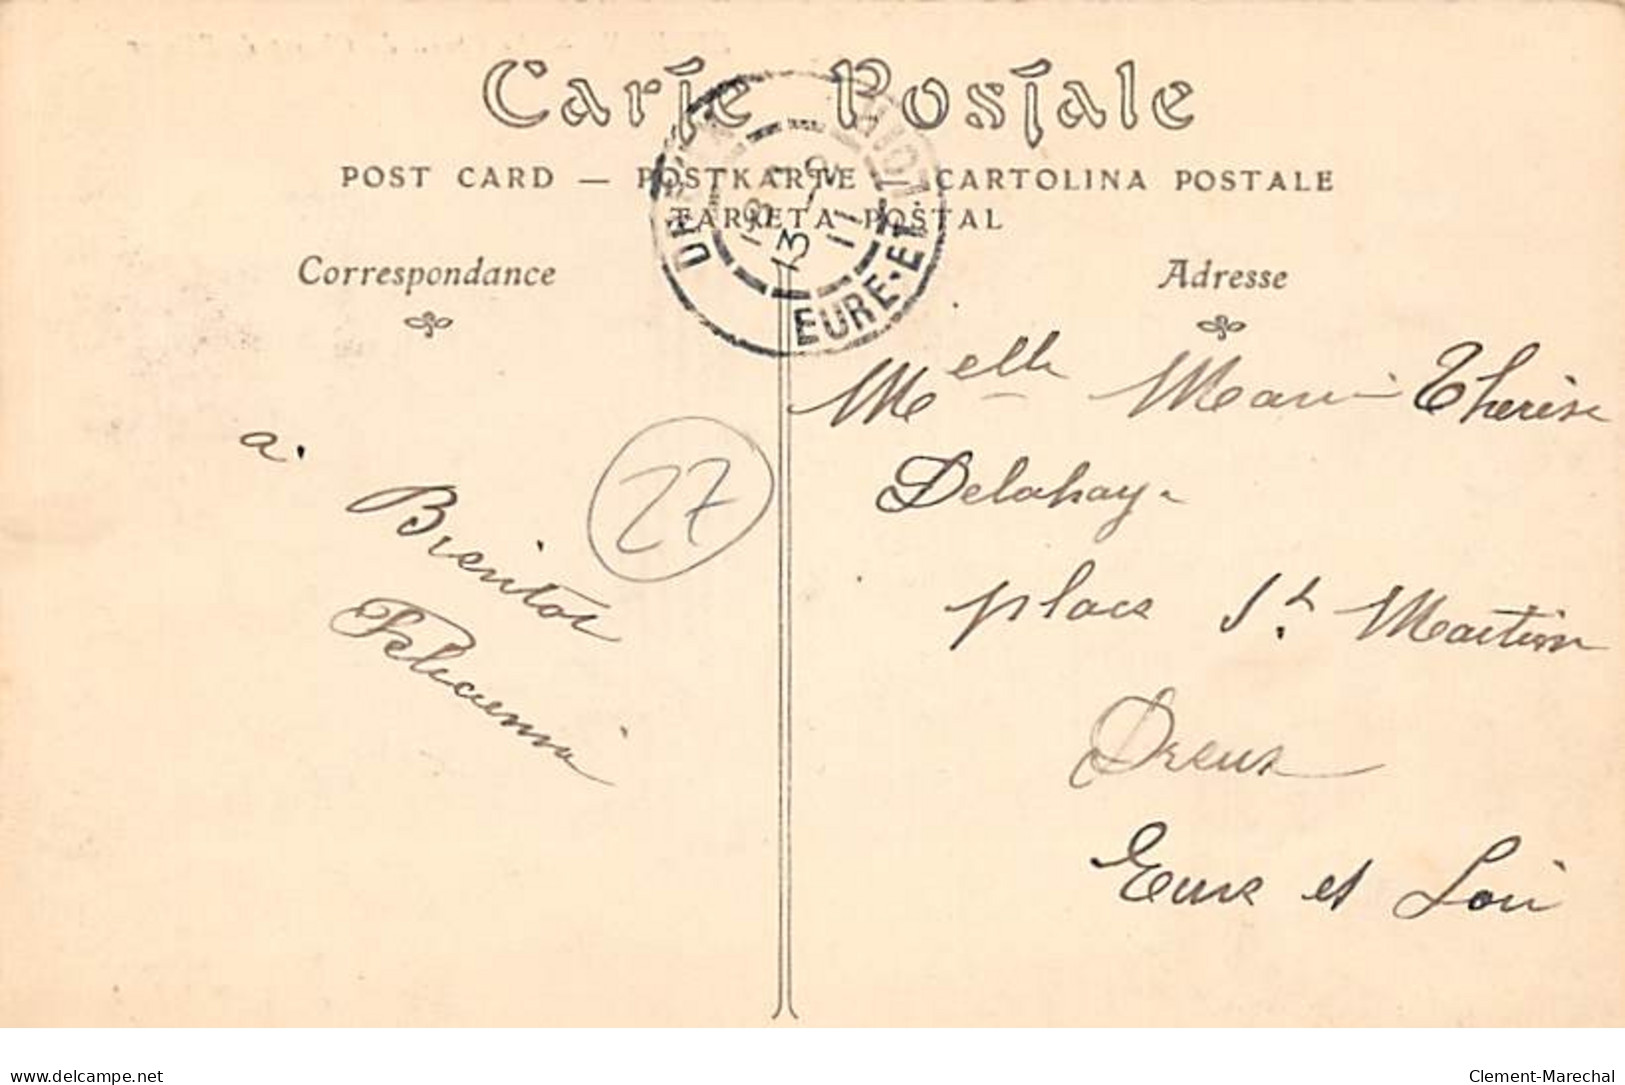 Carte Postale
POST CARD — POSTKARTE — CARTOLINA POSTALE
TARJETA POSTAL
Correspondance
Adresse
EURE-ET
13 -2
11
27
a.
Melle Marie Thérèse
Delahaye
place St Martin
Dreux
Eure et Loir
delcampe.net
Clement-Marechal